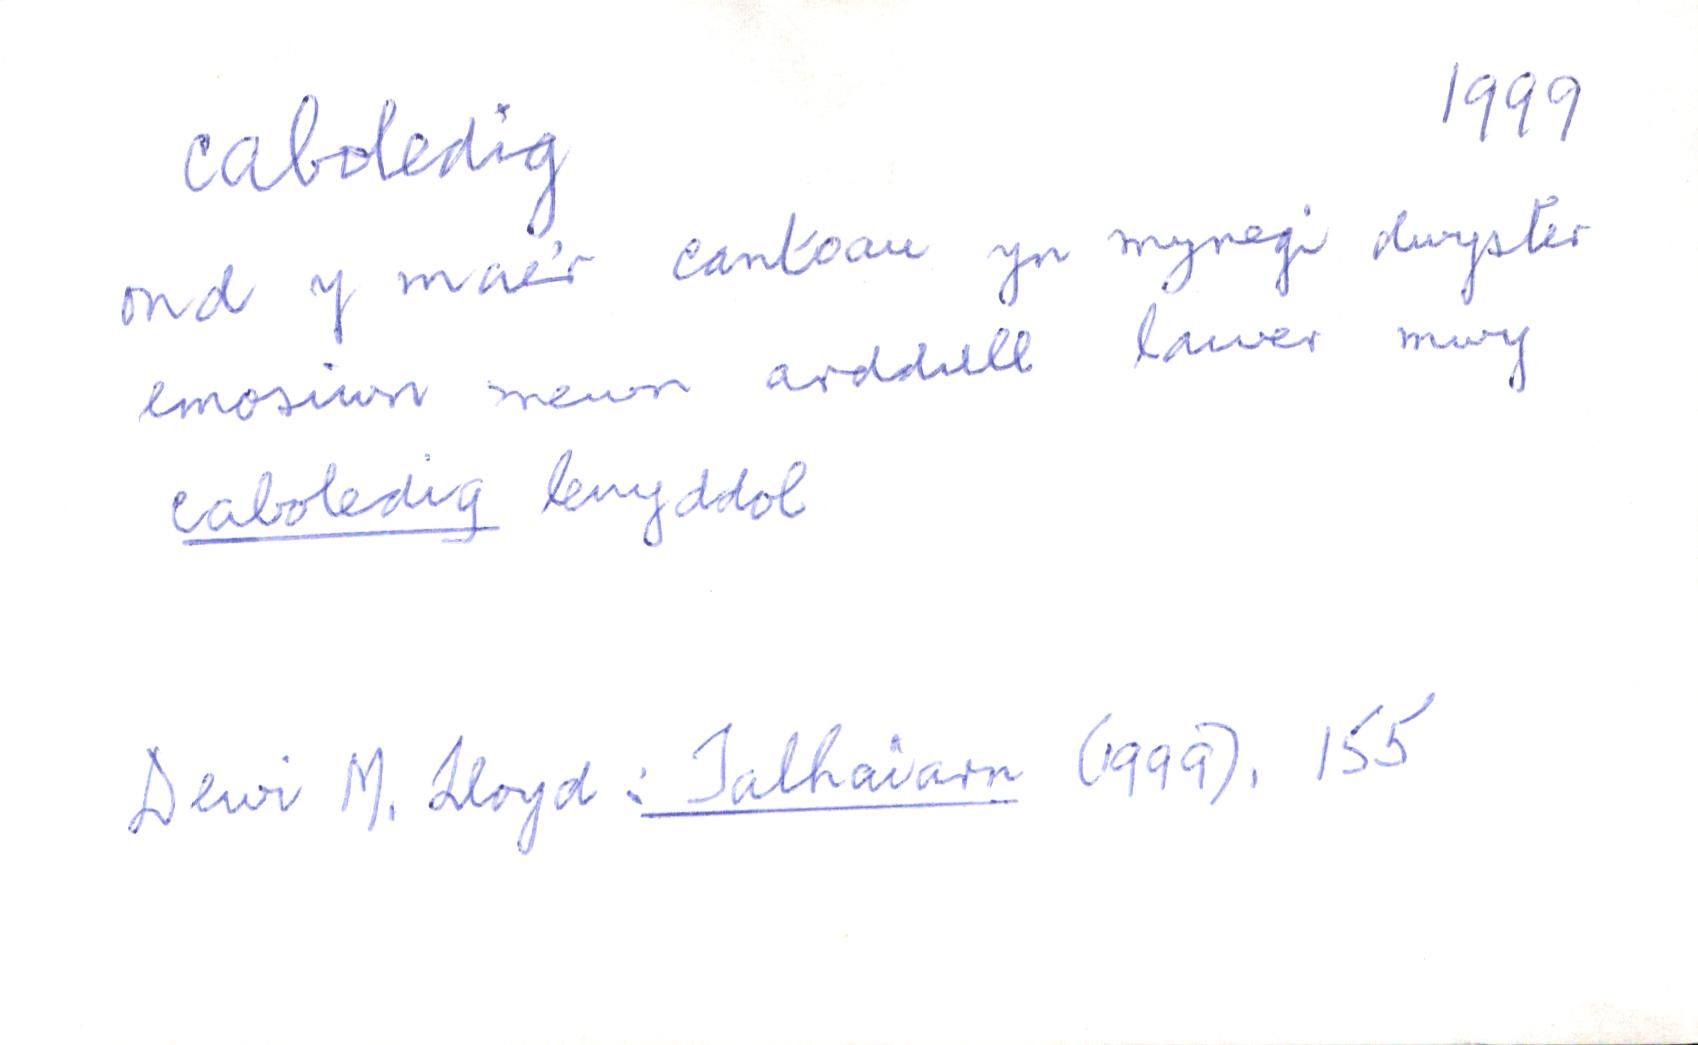 caboledig
1999
ond y mae'r cantoau yn mynegi dwyster
emosiwn mewn arddull lawer mwy
caboledig lenyddol
Dewi M. Lloyd: Talhaiarn (1999), 155